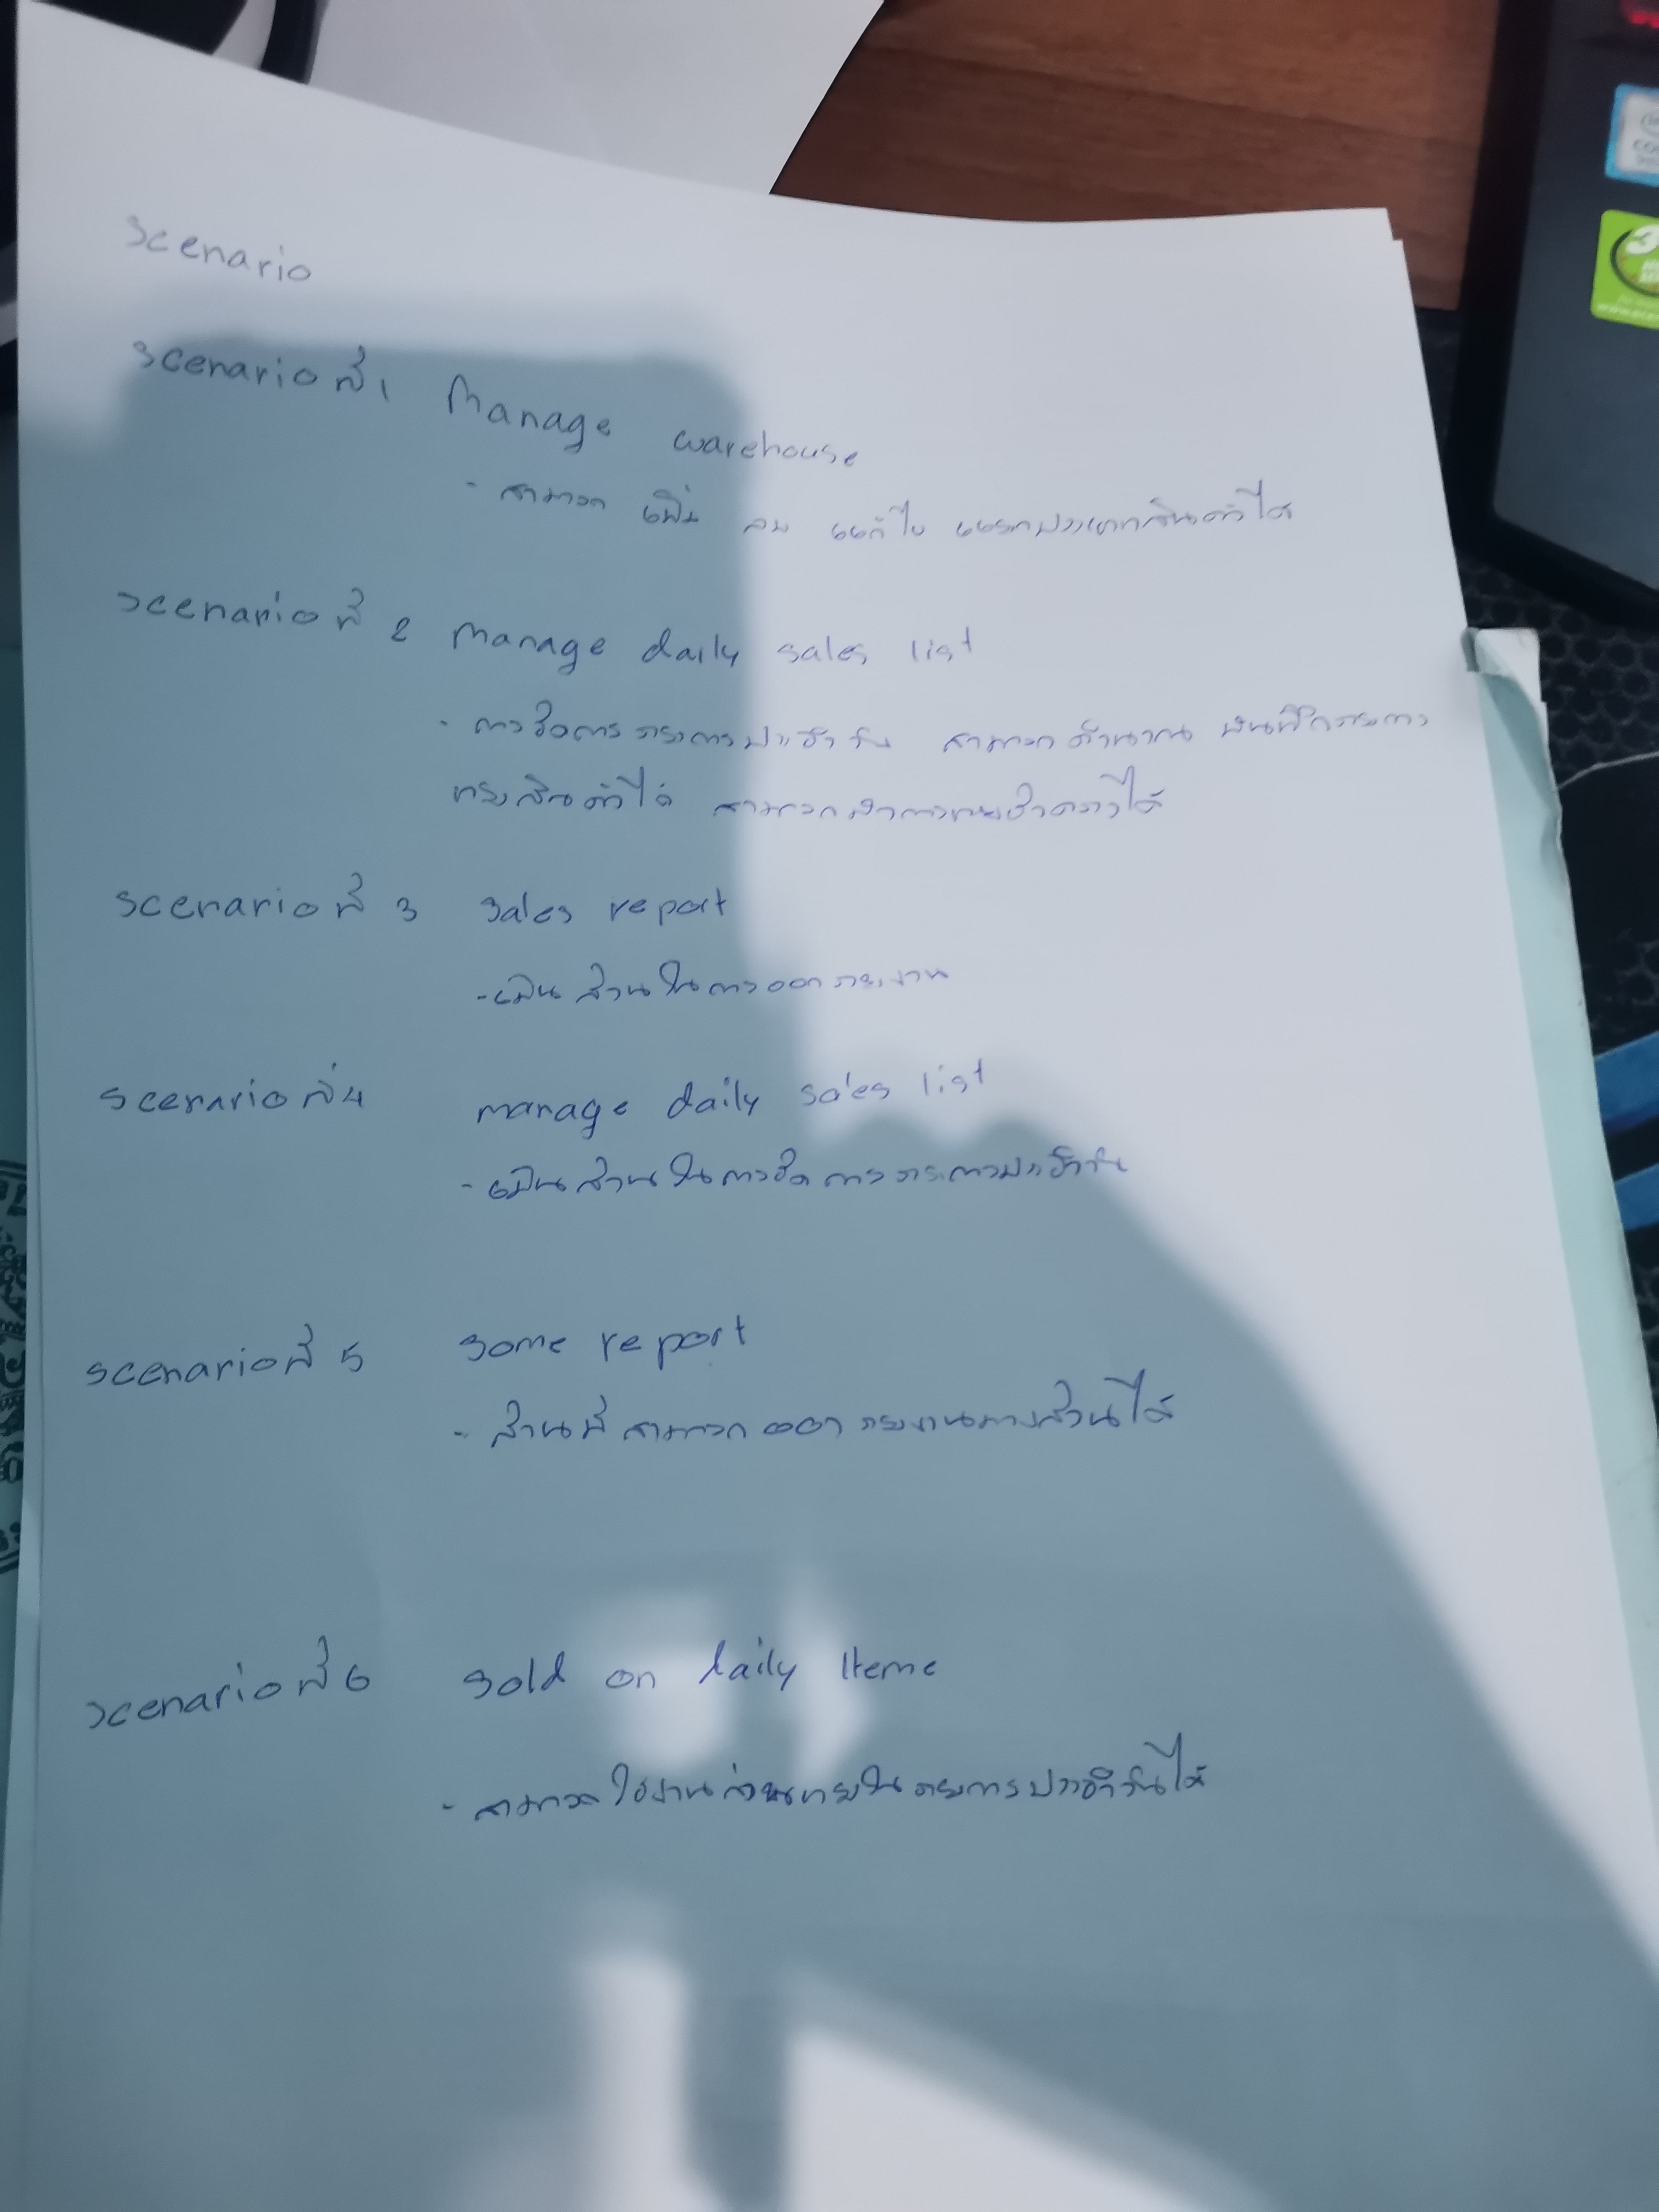 Scenario
Scenario ที่ 1 Manage warehouse
- สามารถ เพิ่ม ลบ แก้ไข แยกประเภทสินค้าได้
Scenario ที่ 2 Manage daily sales list
- การจัดการรายการประจำวัน สามารถคำนวณ บันทึกรายการ
สินค้าได้ สามารถ ได้
Scenario ที่ 3 Sales report
- เป็นส่วนในการออกรายงาน
Scenario ที่ 4 manage daily sales list
- เป็นส่วนในการจัดการรายการประจำวัน
Scenario ที่ 5 Some report
- ส่วนที่สามารถออกรายงานบางส่วนได้
Scenario ที่ 6 Sold on daily Iteme
- สามารถใช้งานส่วนขายในรายการประจำวันได้